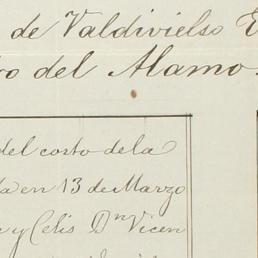 de Valdivielso E
ro del Alamo.
del costo dela
da en 13 de Marzo
y Celis Dⁿ Vicen